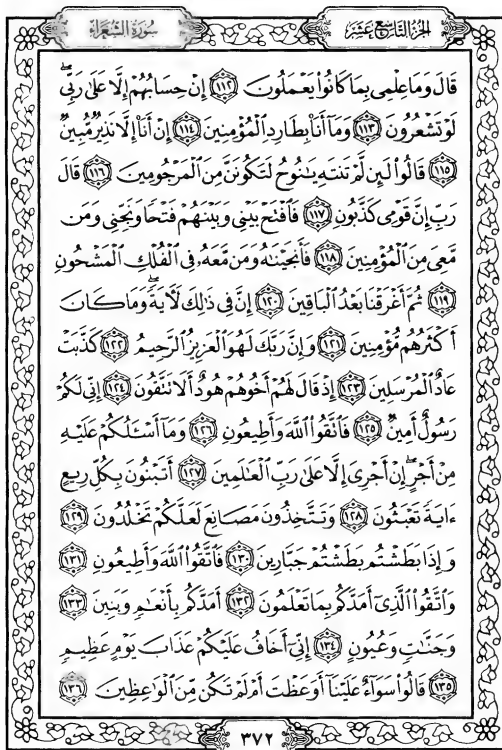 الجزء التاسع عشر
سورة الشعراء
قَالَ وَمَا عِلْمِى بِمَا كَانُوا۟ يَعْمَلُونَ ١١٢ إِنْ حِسَابُهُمْ إِلَّا عَلَىٰ رَبِّى ۖ
لَوْ تَشْعُرُونَ ١١٣ وَمَآ أَنَا۠ بِطَارِدِ ٱلْمُؤْمِنِينَ ١١٤ إِنْ أَنَا۠ إِلَّا نَذِيرٌ مُّبِينٌ
١١٥ قَالُوا۟ لَئِن لَّمْ تَنتَهِ يَٰنُوحُ لَتَكُونَنَّ مِنَ ٱلْمَرْجُومِينَ ١١٦ قَالَ
رَبِّ إِنَّ قَوْمِى كَذَّبُونِ ١١٧ فَٱفْتَحْ بَيْنِى وَبَيْنَهُمْ فَتْحًا وَنَجِّنِى وَمَن
مَّعِىَ مِنَ ٱلْمُؤْمِنِينَ ١١٨ فَأَنجَيْنَٰهُ وَمَن مَّعَهُۥ فِى ٱلْفُلْكِ ٱلْمَشْحُونِ
١١٩ ثُمَّ أَغْرَقْنَا بَعْدُ ٱلْبَاقِينَ ١٢٠ إِنَّ فِى ذَٰلِكَ لَءَايَةً ۖ وَمَا كَانَ
أَكْثَرُهُم مُّؤْمِنِينَ ١٢١ وَإِنَّ رَبَّكَ لَهُوَ ٱلْعَزِيزُ ٱلرَّحِيمُ ١٢٢ كَذَّبَتْ
عَادٌ ٱلْمُرْسَلِينَ ١٢٣ إِذْ قَالَ لَهُمْ أَخُوهُمْ هُودٌ أَلَا تَتَّقُونَ ١٢٤ إِنِّى لَكُمْ
رَسُولٌ أَمِينٌ ١٢٥ فَٱتَّقُوا۟ ٱللَّهَ وَأَطِيعُونِ ١٢٦ وَمَآ أَسْـَٔلُكُمْ عَلَيْهِ
مِنْ أَجْرٍ ۖ إِنْ أَجْرِىَ إِلَّا عَلَىٰ رَبِّ ٱلْعَٰلَمِينَ ١٢٧ أَتَبْنُونَ بِكُلِّ رِيعٍ
ءَايَةً تَعْبَثُونَ ١٢٨ وَتَتَّخِذُونَ مَصَانِعَ لَعَلَّكُمْ تَخْلُدُونَ ١٢٩
وَإِذَا بَطَشْتُم بَطَشْتُمْ جَبَّارِينَ ١٣٠ فَٱتَّقُوا۟ ٱللَّهَ وَأَطِيعُونِ ١٣١
وَٱتَّقُوا۟ ٱلَّذِىٓ أَمَدَّكُم بِمَا تَعْلَمُونَ ١٣٢ أَمَدَّكُم بِأَنْعَٰمٍ وَبَنِينَ ١٣٣
وَجَنَّٰتٍ وَعُيُونٍ ١٣٤ إِنِّىٓ أَخَافُ عَلَيْكُمْ عَذَابَ يَوْمٍ عَظِيمٍ
١٣٥ قَالُوا۟ سَوَآءٌ عَلَيْنَآ أَوَعَظْتَ أَمْ لَمْ تَكُن مِّنَ ٱلْوَٰعِظِينَ ١٣٦
٣٧٢